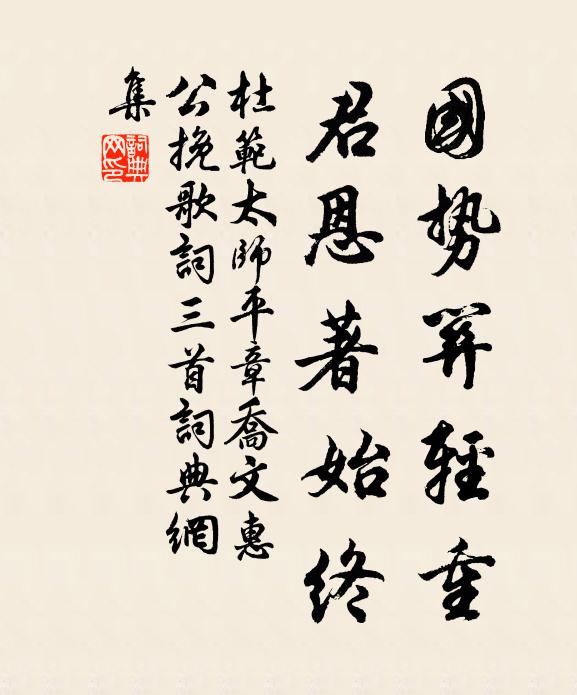 國勢關輕重
君恩著始終
杜範太師平章喬文惠
公挽歌詞三首詞典網
集
詞典
网印